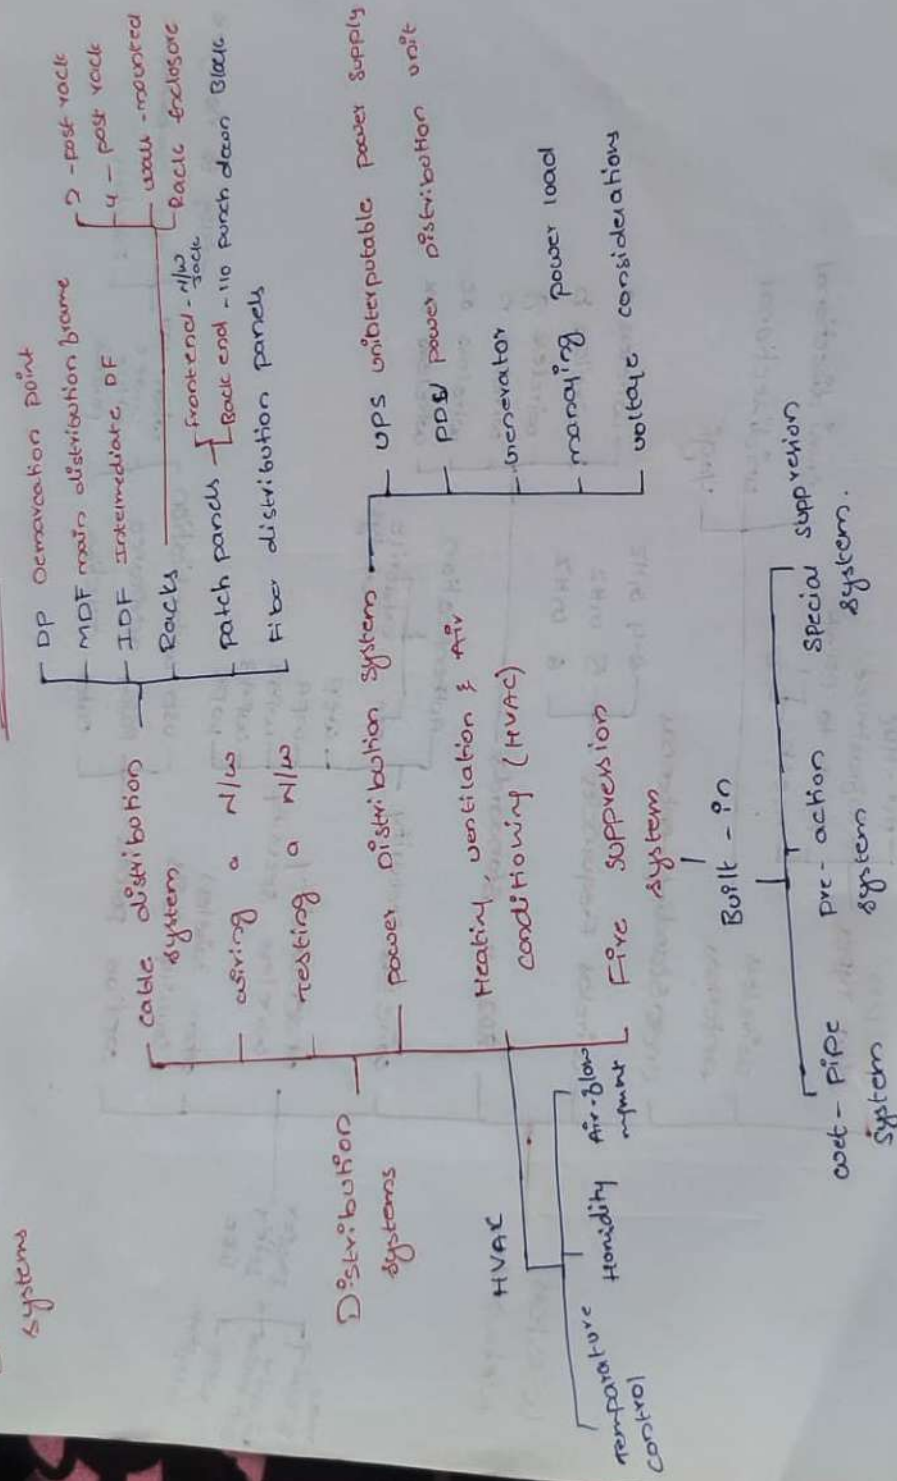 systems
Distribution
systems
cable distribution
system
wiring a N/W
Testing a N/W
power Distribution system
Heating, ventilation & Air
conditioning (HVAC)
Fire suppression
system
DP Demarcation point
MDF main distribution frame
IDF Intermediate DF
Racks
2-post rack
4-post rack
wall-mounted
Rack Enclosure
patch panels
frontend - N/W
Jack
Back end - 110 punch down Block
Fiber distribution panels
UPS uninterputable power supply
PDU power Distribution unit
Generator
managing power load
voltage considerations
HVAC
Temparature
control
Humidity
Air-flow
mgmnt
Built-in
wet-pipe
system
pre-action
system
special suppresion
system.